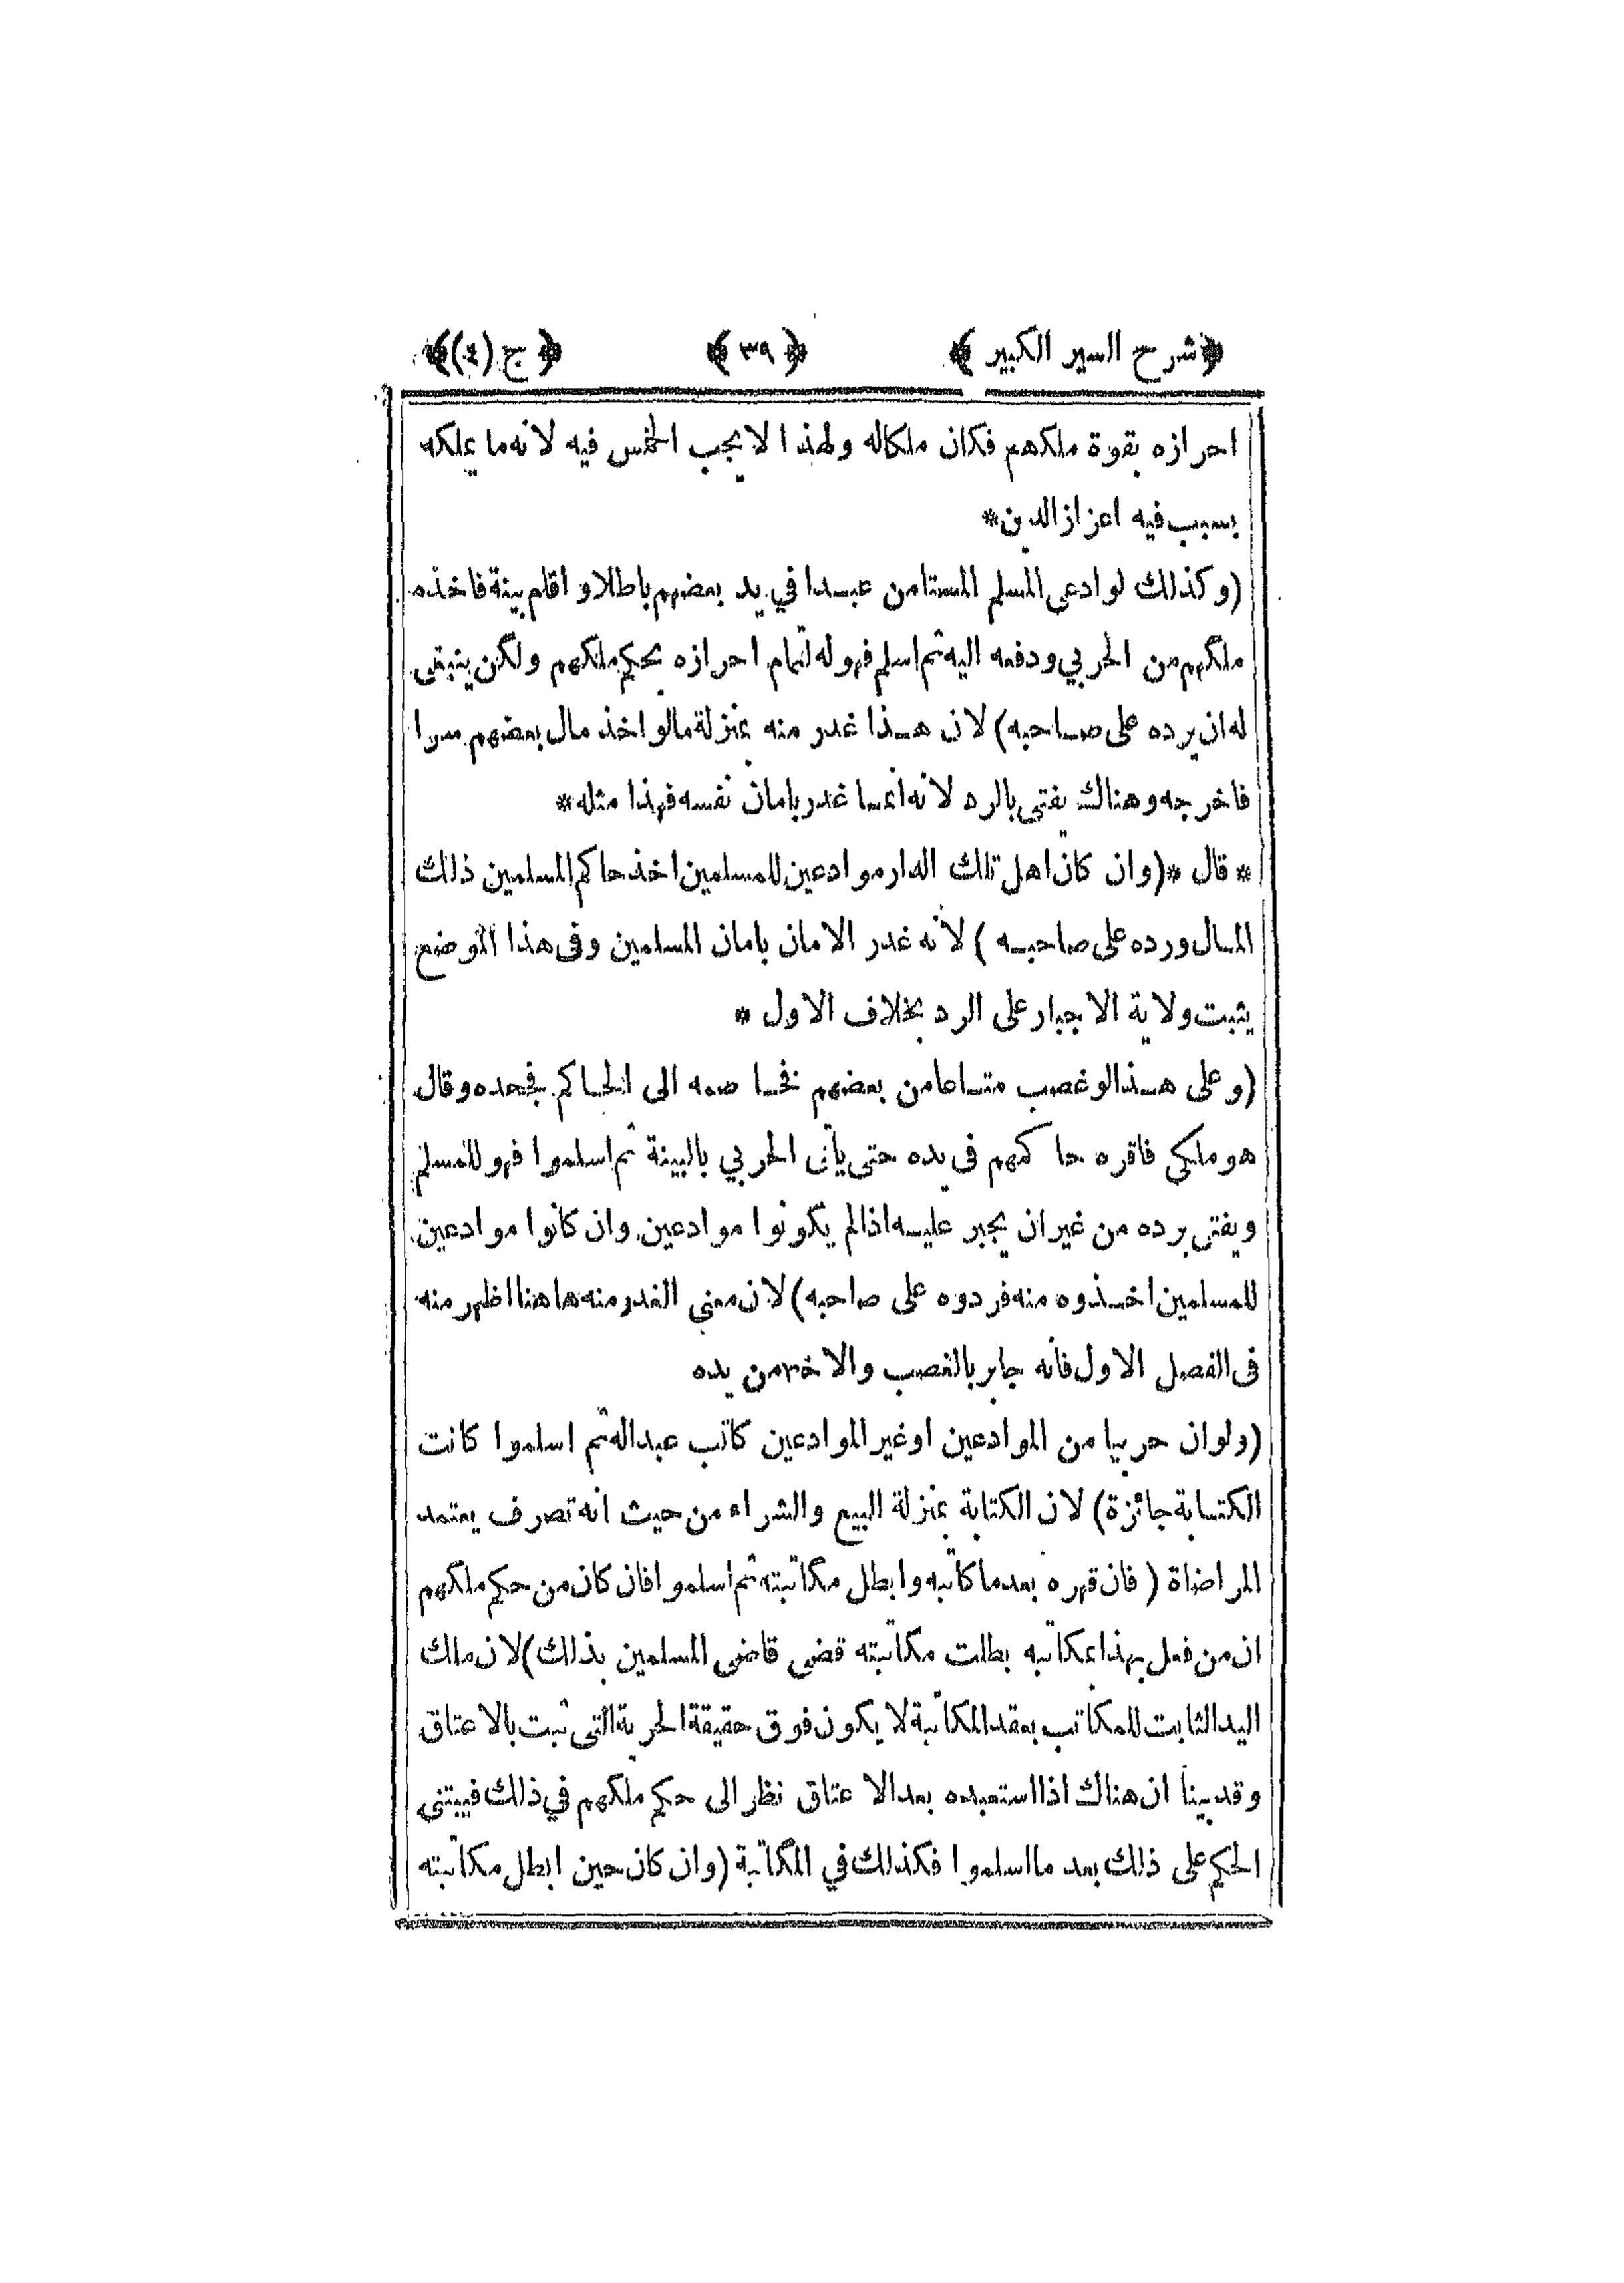 ﴿شرح السير الكبير﴾ ﴿٣٩﴾ ﴿ج (٤)﴾
احرازه بقوة ملكهم فكان ملكاله ولهذا لا يجب الخمس فيه لانه ما يملكه
بسبب فيه اعزاز الدين*
(وكذلك لو ادعى المسلم المستامن عبدا في يد بعضهم باطلا و اقام بينة فاخذه
ملكهم من الحربي ودفعه اليه ثم اسلم فهو له لتمام احرازه بحكم ملكهم ولكن ينبغى
له ان يرده على صاحبه) لان هذا غدر منه بمنزلة مالو اخذ مال بعضهم سرا
فاخرجه وهناك يفتى بالرد لانه انما غدر بامان نفسه فهذا مثله*
* قال *(وان كان اهل تلك الدار موادعين للمسلمين اخذ حاكم المسلمين ذلك
المال ورده على صاحبه) لانه غدر الامان بامان المسلمين وفى هذا الموضع
يثبت ولاية الاجبار على الرد بخلاف الاول *
(وعلى هذا لو غصب متاعا من بعضهم فخا صمه الى الحاكم فجحده وقال
هو ملكي فاقره حا كمهم فى يده حتى يأتى الحربي بالبينة ثم اسلموا فهو للمسلم
ويفتى برده من غير ان يجبر عليه اذا لم يكونوا موادعين وان كانوا موادعين
للمسلمين اخذوه منه فردوه على صاحبه) لان معنى الغدر منه هاهنا اظهر منه
فى الفصل الاول فانه جابر بالغصب والاخذ من يده
(ولوان حربيا من الموادعين او غير الموادعين كاتب عبداله ثم اسلموا كانت
الكتابة جائزة) لان الكتابة بمنزلة البيع والشراء من حيث انه تصرف يعتمد
المراضاة (فان قهره بعد ما كاتبه وابطل مكاتبته ثم اسلموا فان كان من حكم ملكهم
ان من فعل بهذا بمكاتبه بطلت مكاتبته قضى قاضى المسلمين بذلك) لان ملك
اليد الثابت للمكاتب بعقد المكاتبة لا يكون فوق حقيقة الحرية التى ثبت بالاعتاق
وقد بينا ان هناك اذا استعبده بعد الاعتاق نظر الى حكم ملكهم في ذلك فيبتنى
الحكم على ذلك بعد ما اسلموا فكذلك في المكاتبة (وان كان حين ابطل مكاتبته